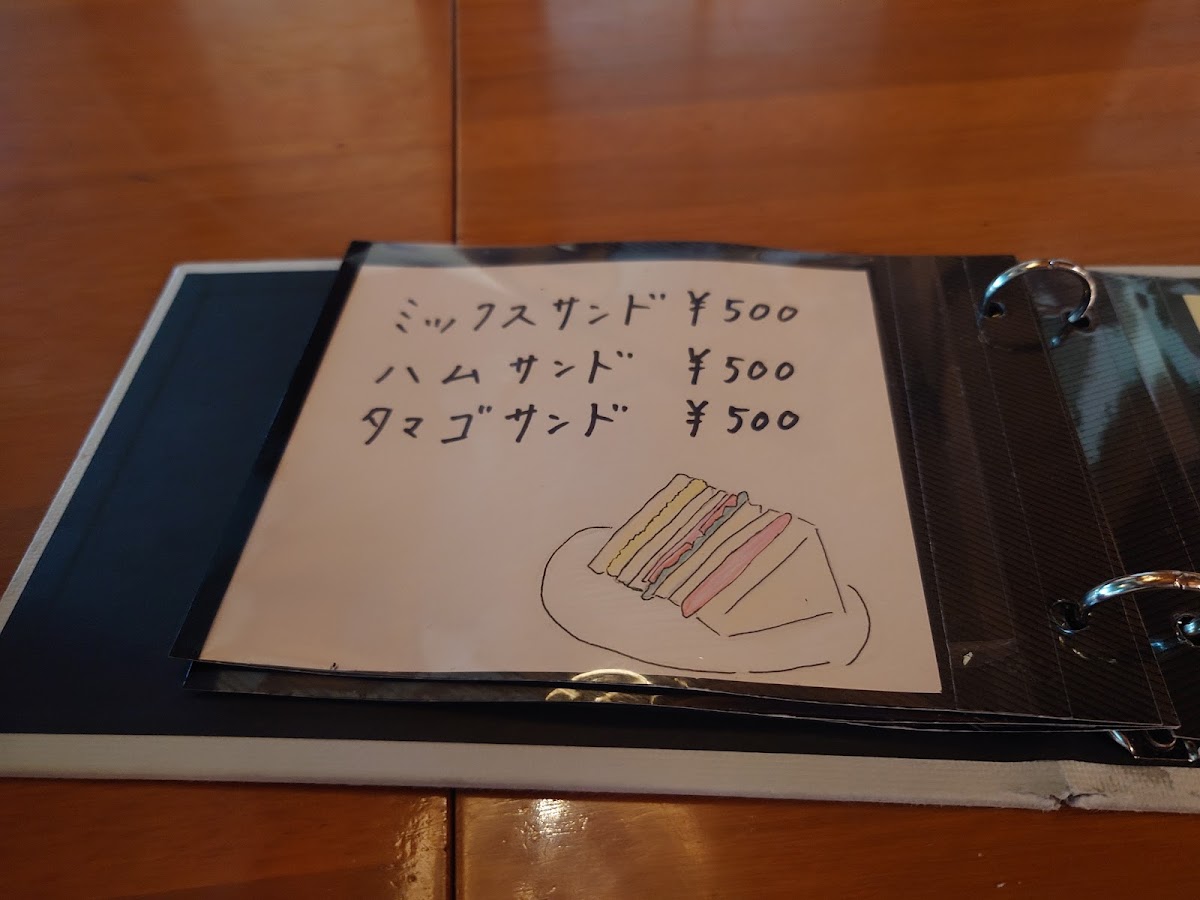 ミックスサンド ¥500
ハムサンド ¥500
タマゴサンド ¥500